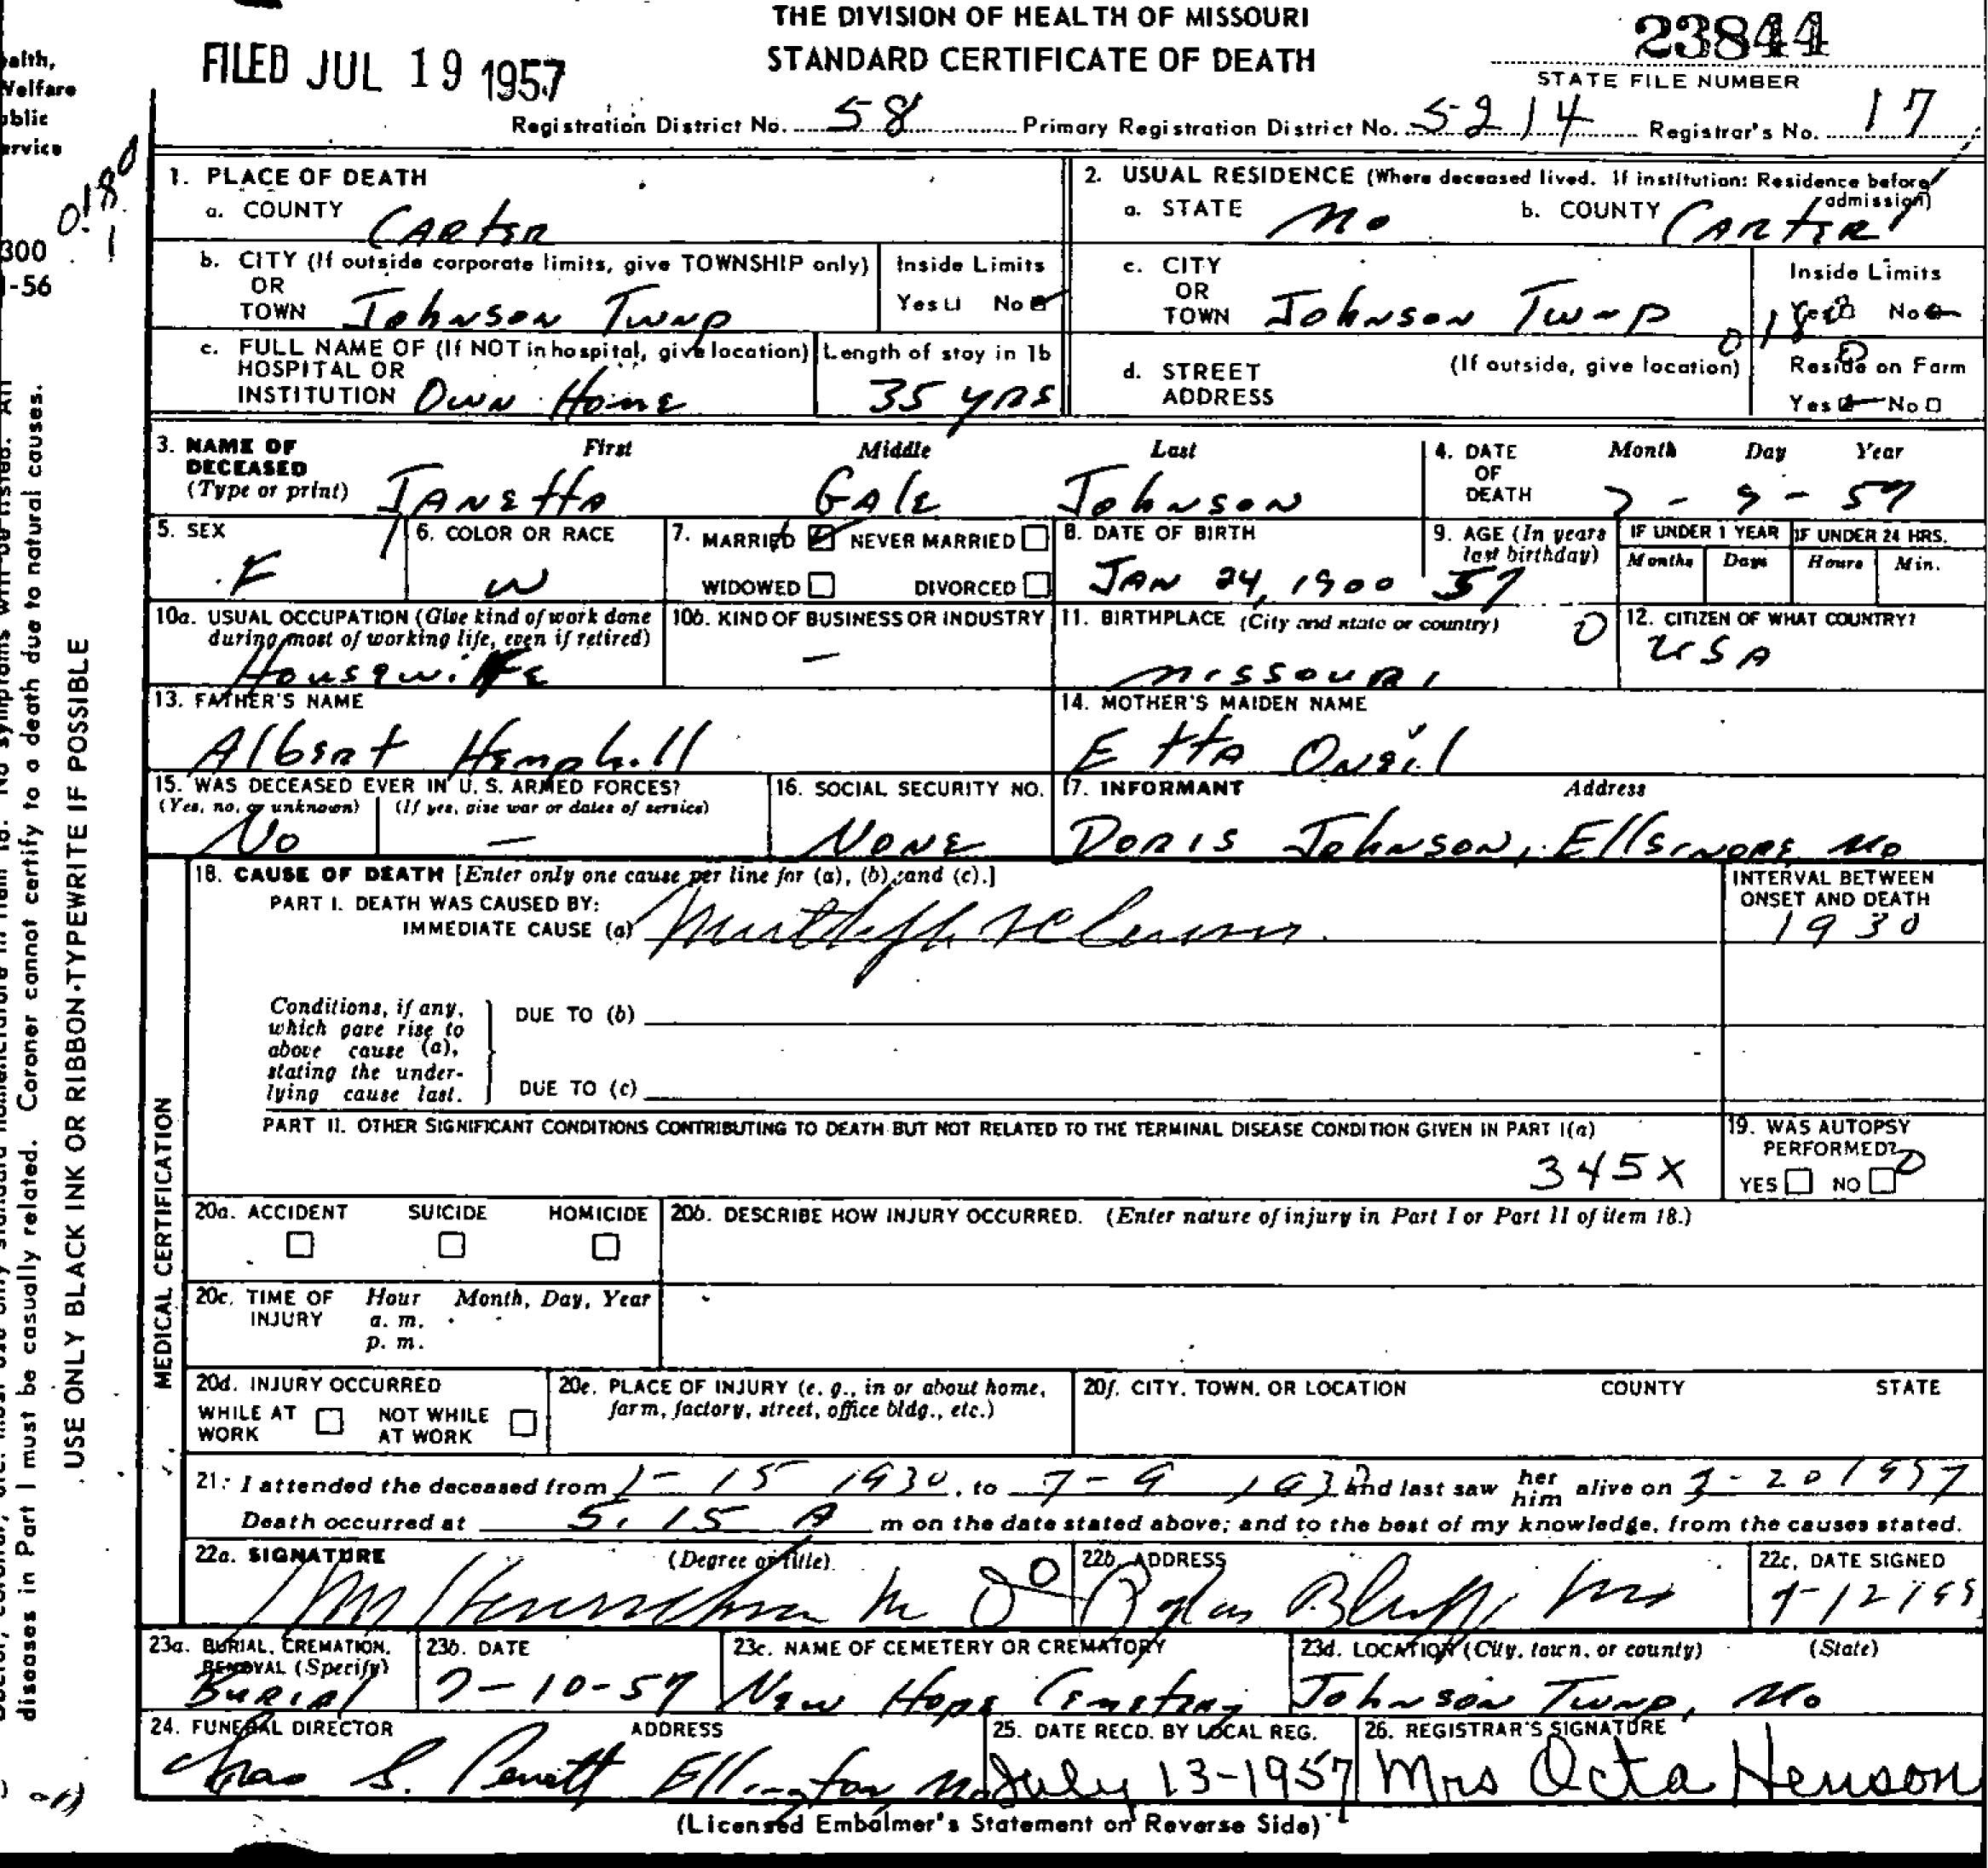 THE DIVISION OF HEALTH OF MISSOURI
STANDARD CERTIFICATE OF DEATH
FILED JUL 19 1957
23844
STATE FILE NUMBER
Registration District No. 58 Primary Registration District No. 5214 Registrar's No. 17
ealth,
Welfare
ublic
ervice
300
-56
0180
1
1. PLACE OF DEATH
a. COUNTY CARTER
2. USUAL RESIDENCE (Where deceased lived. If institution: Residence before admission)
a. STATE Mo b. COUNTY CARTER
b. CITY (If outside corporate limits, give TOWNSHIP only)
OR
TOWN Johnson Twnp
Inside Limits
Yes No
c. CITY
OR
TOWN Johnson Twnp
Inside Limits
Yes No
0180
c. FULL NAME OF (If NOT in hospital, give location)
HOSPITAL OR
INSTITUTION Own Home
Length of stay in 1b
35 yrs
d. STREET
ADDRESS
(If outside, give location)
Reside on Farm
Yes No
3. NAME OF
DECEASED
(Type or print)
First Middle Last
JANEttA GAlE Johnson
4. DATE
OF
DEATH
Month Day Year
7 - 9 - 57
5. SEX
F
6. COLOR OR RACE
W
7. MARRIED NEVER MARRIED
WIDOWED DIVORCED
8. DATE OF BIRTH
JAN 24, 1900
9. AGE (In years
last birthday)
57
IF UNDER 1 YEAR
Months Days
IF UNDER 24 HRS.
Hours Min.
10a. USUAL OCCUPATION (Give kind of work done
during most of working life, even if retired)
Housewife
10b. KIND OF BUSINESS OR INDUSTRY
—
11. BIRTHPLACE (City and state or country)
MISSOURI
0
12. CITIZEN OF WHAT COUNTRY?
USA
13. FATHER'S NAME
Albert Hemphill
14. MOTHER'S MAIDEN NAME
EttA Oneil
15. WAS DECEASED EVER IN U. S. ARMED FORCES?
(Yes, no, or unknown) (If yes, give war or dates of service)
No —
16. SOCIAL SECURITY NO.
NONE
17. INFORMANT Address
Doris Johnson, Ellsinore, Mo
18. CAUSE OF DEATH [Enter only one cause per line for (a), (b), and (c).]
PART I. DEATH WAS CAUSED BY:
IMMEDIATE CAUSE (a)
INTERVAL BETWEEN
ONSET AND DEATH
1930
Conditions, if any,
which gave rise to
above cause (a),
stating the under-
lying cause last.
DUE TO (b)
DUE TO (c)
PART II. OTHER SIGNIFICANT CONDITIONS CONTRIBUTING TO DEATH BUT NOT RELATED TO THE TERMINAL DISEASE CONDITION GIVEN IN PART I(a)
345X
19. WAS AUTOPSY
PERFORMED?
YES NO
20a. ACCIDENT SUICIDE HOMICIDE
20b. DESCRIBE HOW INJURY OCCURRED. (Enter nature of injury in Part I or Part II of item 18.)
20c. TIME OF
INJURY
Hour Month, Day, Year
a. m.
p. m.
20d. INJURY OCCURRED
WHILE AT
WORK
NOT WHILE
AT WORK
20e. PLACE OF INJURY (e. g., in or about home,
farm, factory, street, office bldg., etc.)
20f. CITY, TOWN, OR LOCATION COUNTY STATE
21. I attended the deceased from 1-15 1930, to 7-9 and last saw her him alive on
Death occurred at 5:15 A m on the date stated above; and to the best of my knowledge, from the causes stated.
22a. SIGNATURE (Degree or title)
22b. ADDRESS
Poplar Bluff, Mo
22c. DATE SIGNED
23a. BURIAL, CREMATION,
REMOVAL (Specify)
BURIAl
23b. DATE
7-10-57
23c. NAME OF CEMETERY OR CREMATORY
New Hope Cemetery
23d. LOCATION (City, town, or county) (State)
Johnson Twnp, Mo
24. FUNERAL DIRECTOR ADDRESS
Chas S. Ellington Mo
25. DATE RECD. BY LOCAL REG.
July 13-1957
26. REGISTRAR'S SIGNATURE
Mrs Octa Henson
(Licensed Embalmer's Statement on Reverse Side)
MEDICAL CERTIFICATION
USE ONLY BLACK INK OR RIBBON-TYPEWRITE IF POSSIBLE
diseases in Part I must be casually related. Coroner cannot certify to a death due to natural causes.